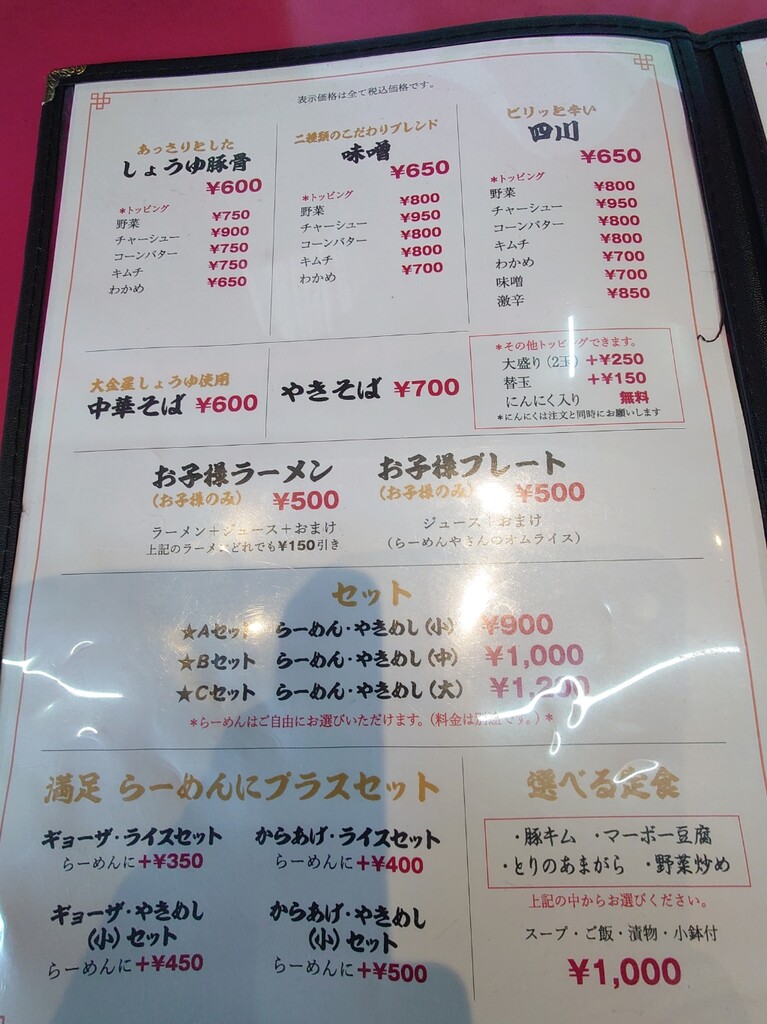 表示価格は全て税込価格です。
あっさりとした
しょうゆ豚骨
¥600
*トッピング
野菜 ¥750
チャーシュー ¥900
コーンバター ¥750
キムチ ¥750
わかめ ¥650
二種類のこだわりブレンド
味噌
¥650
*トッピング
野菜 ¥800
チャーシュー ¥950
コーンバター ¥800
キムチ ¥800
わかめ ¥700
ピリッと辛い
四川
¥650
*トッピング
野菜 ¥800
チャーシュー ¥950
コーンバター ¥800
キムチ ¥800
わかめ ¥700
味噌 ¥700
激辛 ¥850
大金星しょうゆ使用
中華そば ¥600
やきそば ¥700
*その他トッピングできます。
大盛り(2玉) +¥250
替玉 +¥150
にんにく入り 無料
*にんにくは注文と同時にお願いします
お子様ラーメン
(お子様のみ) ¥500
ラーメン+ジュース+おまけ
上記のラーメンどれでも¥150引き
お子様プレート
(お子様のみ) ¥500
ジュース+おまけ
(らーめんやさんのオムライス)
セット
☆Aセット らーめん・やきめし(小) ¥900
☆Bセット らーめん・やきめし(中) ¥1,000
☆Cセット らーめん・やきめし(大) ¥1,200
*らーめんはご自由にお選びいただけます。(料金は別途です。)*
満足 らーめんにプラスセット
ギョーザ・ライスセット
らーめんに+¥350
からあげ・ライスセット
らーめんに+¥400
ギョーザ・やきめし
(小)セット
らーめんに+¥450
からあげ・やきめし
(小)セット
らーめんに+¥500
選べる定食
・豚キム ・マーボー豆腐
・とりのあまがら ・野菜炒め
上記の中からお選びください。
スープ・ご飯・漬物・小鉢付
¥1,000